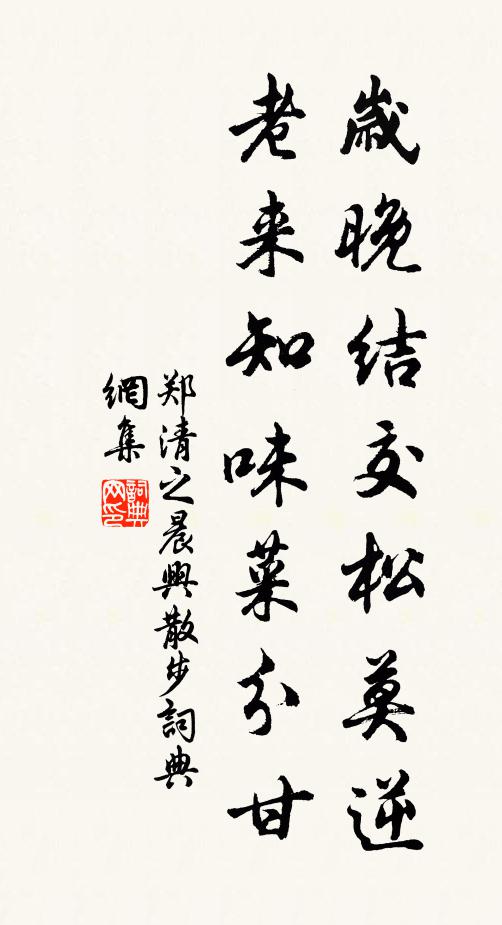 歲晚結交松莫逆
老来知味菜分甘
郑清之晨興散步詞典
網集
詞典網印